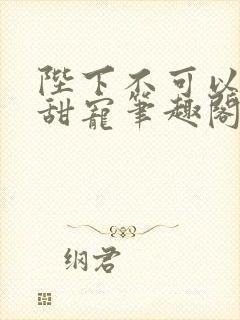 陛下不可以
甜宠笔趣阁
纲君